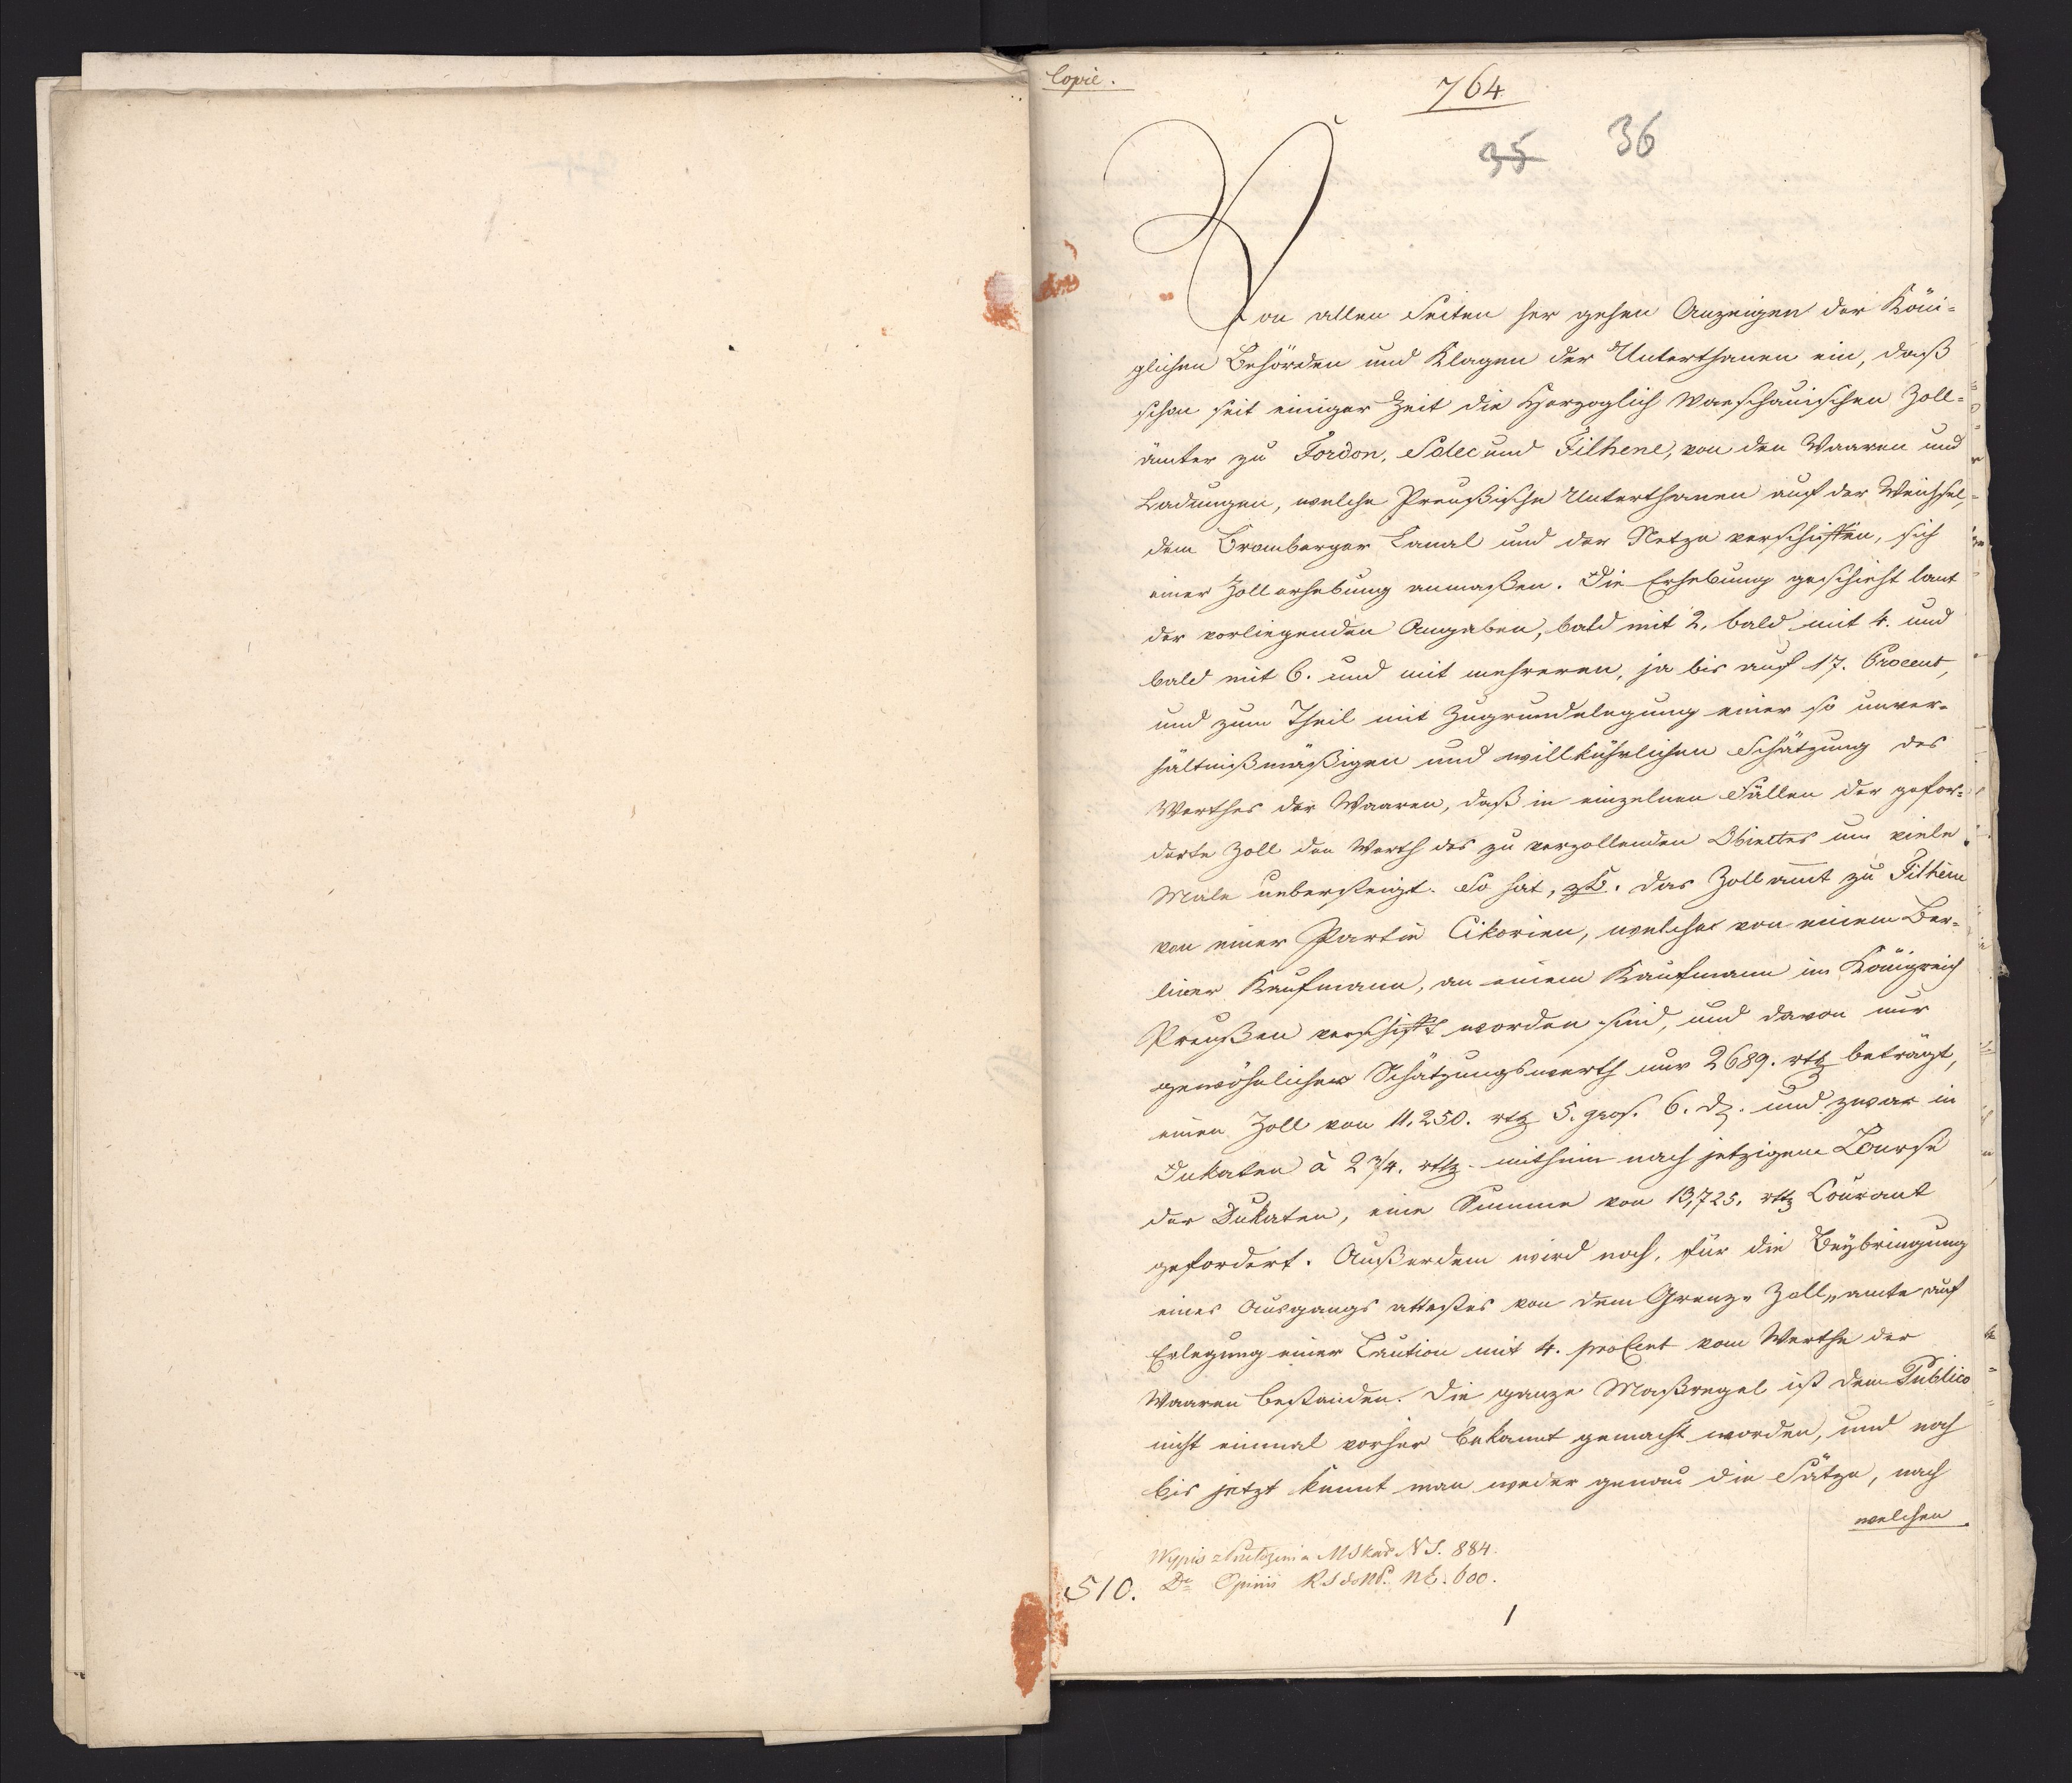 Copie.
764
35 36
Von allen Seiten her gehen Anzeigen der Köni-
glichen Behörden und Klagen der Unterthanen ein, daß
schon seit einiger Zeit die Herzoglich Warschauischen Zoll-
ämter zu Fordon, Solec und Filhene, von den Waaren und
Ladungen, welche Preußische Unterthanen auf der Weichsel,
dem Bromberger Canal und der Netze verschiffen, sich
einer Zollerhebung anmaßen. Die Erhebung geschieht laut
der vorliegenden Angaben, bald mit 2. bald mit 4. und
bald mit 6. und mit mehreren, ja bis auf 17. Procent,
und zum Theil mit Zugrundelegung einer so unver-
hältnißmäßigen und willkührlichen Schätzung des
Werthes der Waaren, daß in einzelnen Fällen der gefor-
derte Zoll den Werth des zu verzollenden Obiectes um viele
Male uebersteigt. So hat, z.B. das Zollamt zu Filhene
von einer Partie Cikorien, welche von einem Ber-
liner Kaufmann, an einem Kaufmann im Königreich
Preußen verschifft worden sind, und davon nur
gewöhnlicher Schätzungswerth nur 2689. rtl beträgt,
einen Zoll von 11,250. rtl 5. gros. 6. d. und zwar in
Dukaten à 2 3/4. rtl mithin nach jetzigem Course
der Dukaten, eine Summe von 13,725. rtl Courant
gefordert. Außerdem wird noch, für die Beybringung
eines Ausgangs attestes von dem Grenz- Zoll-amte auf
Erlegung einer Caution mit 4. proCent vom Werthe der
Waaren bestanden. Die ganze Maßregel ist dem Publico
nicht einmal vorher bekannt gemacht worden, und noch
bis jetzt kennt man weder genau die Sätze, nach
welchen
Wypis z MSkar N S. 884.
510. Do Opinii R. S do N. 600.
1